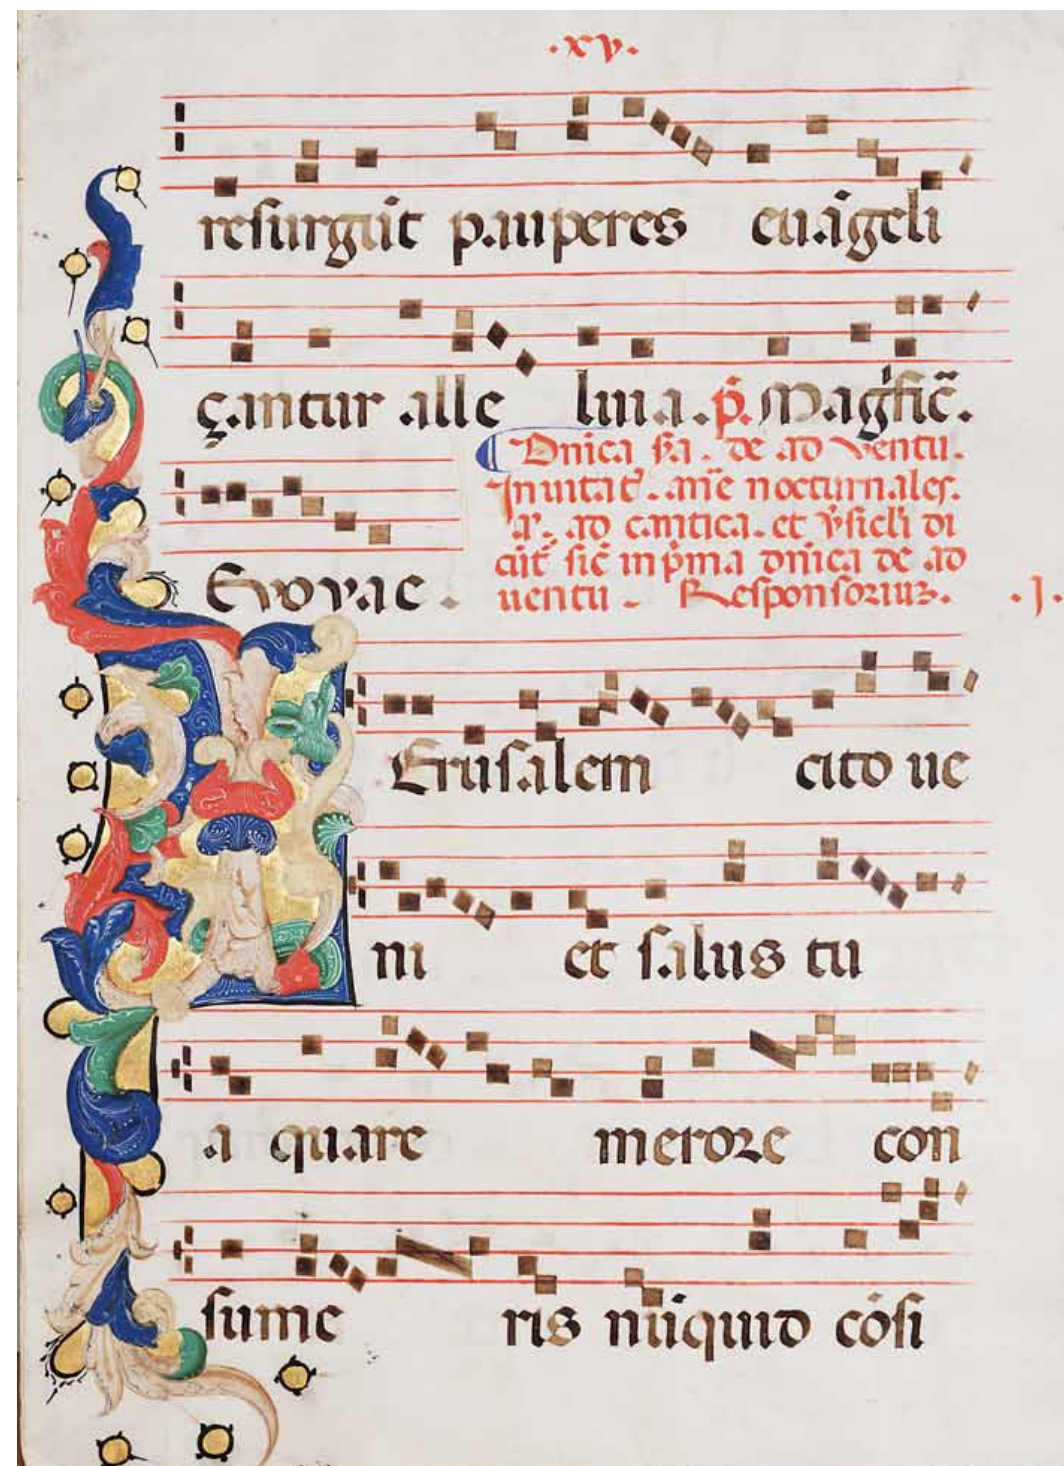 ·xv·
resurgūt pauperes euāgeli
çantur alle luia. p̄. Magn̄ficā.
Dnīca sc̄da. de aduentu.
Inuitat̄. anē nocturnales.
a. ad cantica. et v̄sicl̄i di
cūt sic̄ in p̄ma dnīca de ad
Evovae. uentu. Responsorium. ·j·
Ierusalem cito ue
ni et salus tu
a quare merore con
sume ris nūquid cōsi